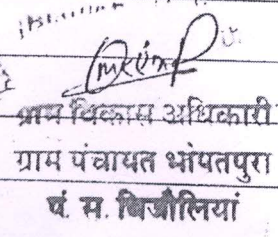 ग्राम विकास अधिकारी
ग्राम पंचायत भोपतपुरा
पं. स. बिजौलियां